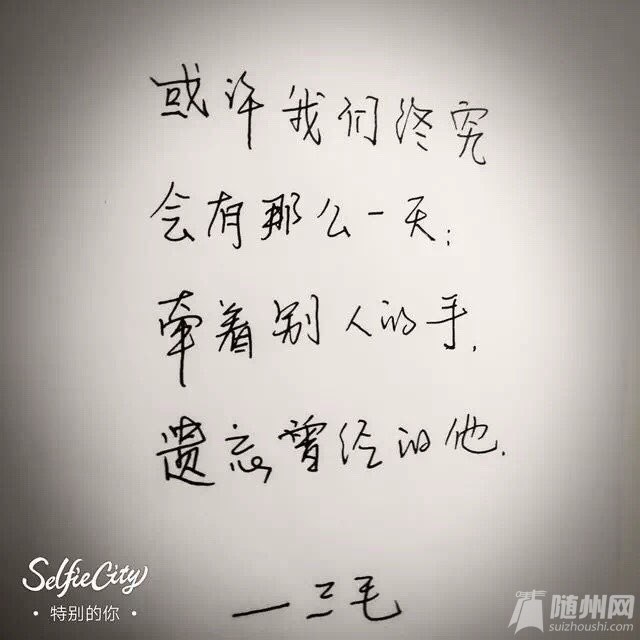 或许我们终究
会有那么一天:
牵着别人的手,
遗忘曾经的他.
—三毛
SelfieCity
·特别的你·
随州网
suizhoushi.com